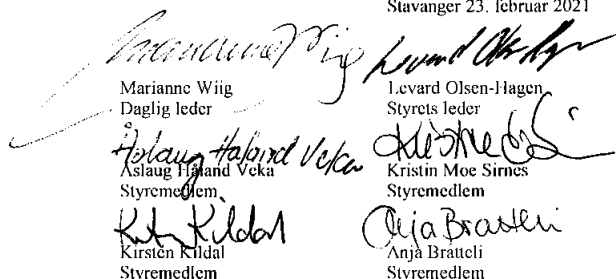 Stavanger 23. februar 2021
Marianne Wiig
Marianne Wiig
Daglig leder
Levard Olsen-Hagen
Styrets leder
Åslaug Håland Veka
Åslaug Håland Veka
Styremedlem
Kristin Moe Sirnes
Styremedlem
Kirsten Kildal
Styremedlem
Anja Bratteli
Anja Bratteli
Styremedlem